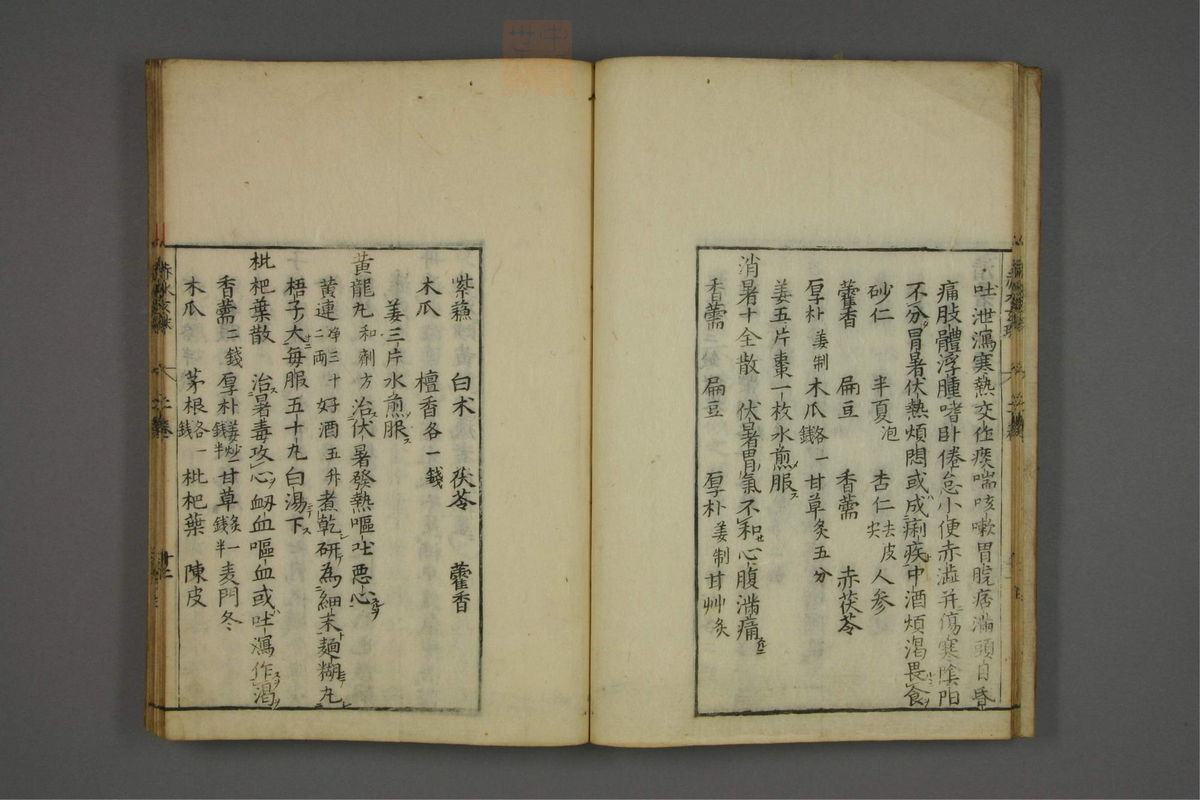 吐泄瀉寒熱交作痰喘咳嗽胃脘痞滿頭目昏
痛肢體浮腫嗜卧倦怠小便赤澁并傷寒陰陽
不分胃暑伏熱煩悶或成痢疾中酒煩渴畏食
砂仁 半夏泡 杏仁去皮尖 人參
藿香 扁豆 香薷 赤茯苓
厚朴姜制 木瓜各一錢 甘草炙五分
姜五片棗一枚水煎服
消暑十全散 伏暑胃氣不和心腹滿痛
香薷二錢 扁豆 厚朴姜制 甘艸炙
紫蘓 白术 茯苓 藿香
木瓜 檀香各一錢
姜三片水煎服
黄龍丸和劑方 治伏暑發熱嘔吐悪心
黄連净三十二兩 好酒五升煮乾研為細末麺糊丸
梧子大每服五十丸白湯下
枇杷葉散 治暑毒攻心衂血嘔血或吐瀉作渴
香薷二錢 厚朴姜炒一錢半 甘草炙一錢半 麦門冬
木瓜 茅根各一錢 枇杷葉 陳皮